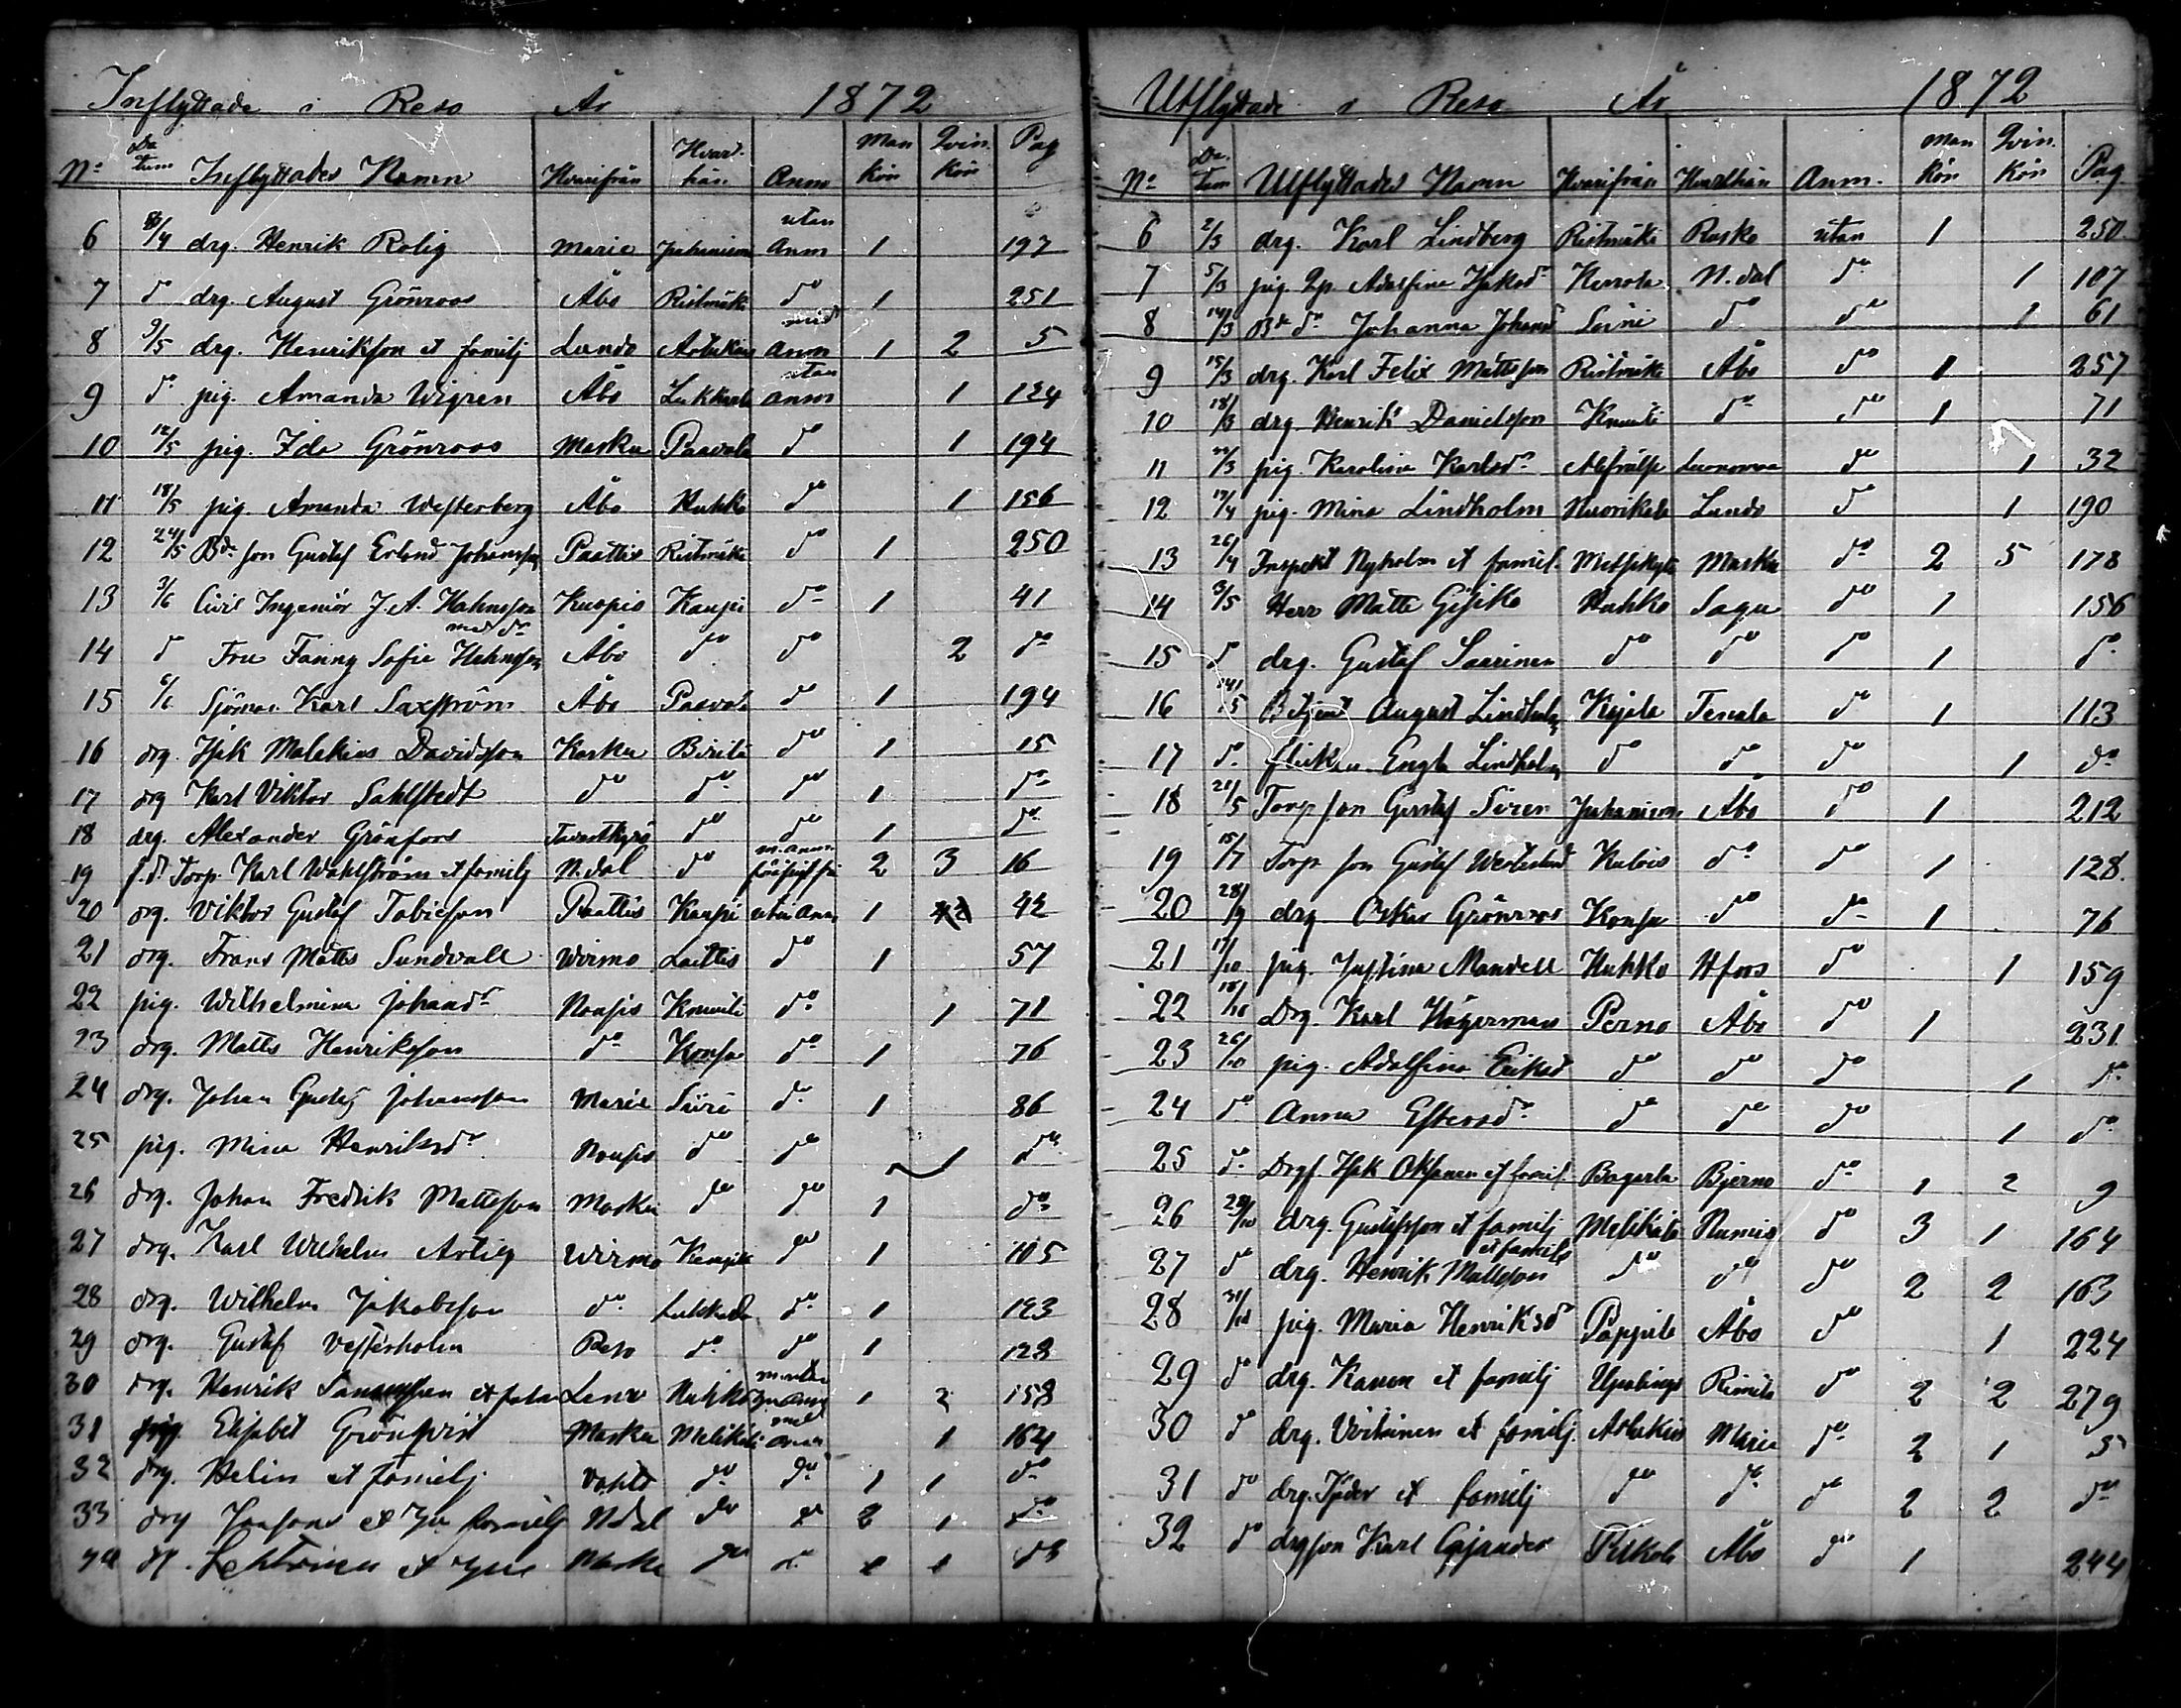 Inflyttade i Reso År 1872
No Datum Inflyttades Namn Hvarifrån Hvarthän Anm Mankön Qvinkön Pag
6 8/4 drg. Henrik Rolig Marie Juhanisen utan Anm 1 197
7 do drg. August Grönroos Åbo Ristimäki do 1 251
8 9/5 drg. Henrikson et familj Lundo Artukais med Anm 1 2 5
9 do pig. Amanda Wigren Åbo Lukkarla utan anm 1 124
10 12/5 pig. Ida Grönroos Masku Paavola do 1 194
11 18/5 pig. Amanda Westerberg Åbo Huhko do 1 156
12 24/5 Bde son Gustaf Erland Johansson Paattis Ristimäki do 1 250
13 3/6 Civil Ingeniör J. A. Hahnsson Kuopio Kaupi do 1 41
14 do Fru Fanny Sofie Hahnsson med do Åbo do do 2 do
15 6/6 Sjöman Karl Saxström Åbo Paavola do 1 194
16 drg. Isak Malakias Davidsson Karku Birila do 1 15
17 drg Karl Viktor Sahlstedt do do do 1 do
18 drg. Alexander Grönfors Tavastkyrö do do 1 do
19 f.d. Torp. Karl Wahlström et familj N.dal do m. anm. 2 3 16
20 drg. Viktor Gustaf Tobiasson Paattis Kaupi utan Anm 1 42
21 drg. Frans Matts Sundvall Wirmo Laittis do 1 57
22 pig. Wilhelmina Johansdr Nousis Knuuti do 1 71
23 drg. Matts Henriksson do Konsa do 1 76
24 drg. Johan Gustaf Johansson Marie Siiri do 1 86
25 pig. Mina Henriksdr Nousis do do 1 do
26 drg. Johan Fredrik Mattsson Masku do do 1 do
27 drg. Karl Wilhelm Artig Wirmo do 1 105
28 drg. Wilhelm Jakobsson do Lukkarla do 1 123
29 drg. Gustaf Vesterholm Reso do do 1 123
30 drg. Henrik Lemo Huhko 1 2 158
31 pig Elisabet Grönqvist Masku Melikkala med anm 1 164
32 drg. Helin et familj Vahto do do 1 1 do
33 drg Jonsson et familj N.dal do do 2 1 do
34 d Lehtinen et Masku do do 1 1 do
Utflyttade i Reso År 1872
No Datum Utflyttades Namn Hvarifrån Hvarthän Anm. Mankön Qvinkön Pag.
6 2/3 drg. Karl Lindberg Ristimäki Rusko utan 1 250
7 5/3 pig. Adolfina Isaksdr Kerrola N.dal do 1 107
8 14/3 Bde dr Johanna Johansd Soini do do 1 61
9 15/3 drg. Karl Felix Mattsson Ristimäki Åbo do 1 257
10 18/3 drg. Henrik Danielsson Knuuti do do 1 71
11 22/3 pig. Karolina Karlsdr Alsfrälse do 1 32
12 17/4 pig. Mina Lindholm Lundo do 1 190
13 26/4 Inspekt Nyholm et famil. Metsikylä Masku do 2 5 178
14 3/5 Herr Matts Huhko Sagu do 1 156
15 do drg. Gustaf Saarinen do do do 1 do
16 14/5 Betjent August Lindholm Kujala Tenala do 1 113
17 do flickan Engla Lindholm do do do 1 do
18 21/5 Torp son Gustaf Siren Juhanisen Åbo do 1 212
19 15/7 Torp son Gustaf Westerlund Kulois do do 1 128.
20 28/9 drg Oskar Grönroos Konsa do do 1 76
21 17/10 pig. Justina Mandell Huhko Hfors do 1 159
22 18/10 Drg. Karl Hägerman Perno Åbo do 1 231
23 26/10 pig. Adolfina Eriksd do do do 1 do
24 do Anna Estersdr do do do 1 do
25 do Drg. Isak Oksanen et famil. Bagarla Bjerno do 1 2 9
26 29/10 drg. Gustafsson et familj Melikkala Rumis do 3 1 164
27 do drg. Henrik Mattsson et familj do do do 2 2 163
28 31/10 pig. Maria Henriksd Pappila Åbo do 1 224
29 do drg. Kanon et familj Upalinge Rimito do 2 2 279
30 do drg. Virtanen et familj. Artukais Marie do 2 1 5
31 do drg. Töder et familj do do do 2 2 do
32 do drgson Karl Cajander Piikola Åbo do 1 244